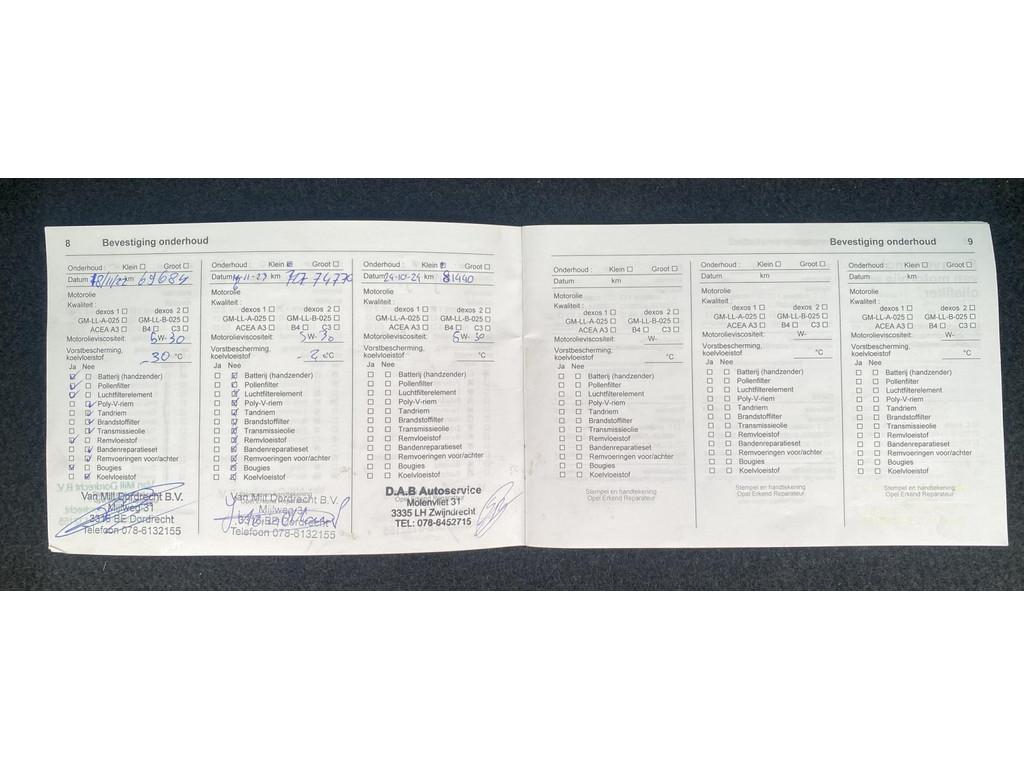 8 Bevestiging onderhoud
Onderhoud : Klein Groot
Datum 18/11/22 km 69684
Motorolie
Kwaliteit :
dexos 1 dexos 2
GM-LL-A-025 GM-LL-B-025
ACEA A3 B4 C3
Motorolieviscositeit: 5W-30
Vorstbescherming,
koelvloeistof -30 °C
Ja Nee
Batterij (handzender)
Pollenfilter
Luchtfilterelement
Poly-V-riem
Tandriem
Brandstoffilter
Transmissieolie
Remvloeistof
Bandenreparatieset
Remvoeringen voor/achter
Bougies
Koelvloeistof
Van Mill Dordrecht B.V.
Mijlweg 31
3316 BE Dordrecht
Telefoon 078-6132155
Onderhoud : Klein Groot
Datum 11-23 km 74770
Motorolie
Kwaliteit :
dexos 1 dexos 2
GM-LL-A-025 GM-LL-B-025
ACEA A3 B4 C3
Motorolieviscositeit: 5W-30
Vorstbescherming,
koelvloeistof °C
Ja Nee
Batterij (handzender)
Pollenfilter
Luchtfilterelement
Poly-V-riem
Tandriem
Brandstoffilter
Transmissieolie
Remvloeistof
Bandenreparatieset
Remvoeringen voor/achter
Bougies
Koelvloeistof
Van Mill Dordrecht B.V.
Mijlweg 31
3316 BE Dordrecht
Telefoon 078-6132155
Onderhoud : Klein Groot
Datum 24-10-24 km 81440
Motorolie
Kwaliteit :
dexos 1 dexos 2
GM-LL-A-025 GM-LL-B-025
ACEA A3 B4 C3
Motorolieviscositeit: 5W-30
Vorstbescherming,
koelvloeistof °C
Ja Nee
Batterij (handzender)
Pollenfilter
Luchtfilterelement
Poly-V-riem
Tandriem
Brandstoffilter
Transmissieolie
Remvloeistof
Bandenreparatieset
Remvoeringen voor/achter
Bougies
Koelvloeistof
D.A.B Autoservice
Molenvliet 31
3335 LH Zwijndrecht
TEL: 078-6452715
Bevestiging onderhoud 9
Onderhoud : Klein Groot
Datum km
Motorolie
Kwaliteit :
dexos 1 dexos 2
GM-LL-A-025 GM-LL-B-025
ACEA A3 B4 C3
Motorolieviscositeit: W-
Vorstbescherming,
koelvloeistof °C
Ja Nee
Batterij (handzender)
Pollenfilter
Luchtfilterelement
Poly-V-riem
Tandriem
Brandstoffilter
Transmissieolie
Remvloeistof
Bandenreparatieset
Remvoeringen voor/achter
Bougies
Koelvloeistof
Stempel en handtekening
Opel Erkend Reparateur
Onderhoud : Klein Groot
Datum km
Motorolie
Kwaliteit :
dexos 1 dexos 2
GM-LL-A-025 GM-LL-B-025
ACEA A3 B4 C3
Motorolieviscositeit: W-
Vorstbescherming,
koelvloeistof °C
Ja Nee
Batterij (handzender)
Pollenfilter
Luchtfilterelement
Poly-V-riem
Tandriem
Brandstoffilter
Transmissieolie
Remvloeistof
Bandenreparatieset
Remvoeringen voor/achter
Bougies
Koelvloeistof
Stempel en handtekening
Opel Erkend Reparateur
Onderhoud : Klein Groot
Datum km
Motorolie
Kwaliteit :
dexos 1 dexos 2
GM-LL-A-025 GM-LL-B-025
ACEA A3 B4 C3
Motorolieviscositeit: W-
Vorstbescherming,
koelvloeistof °C
Ja Nee
Batterij (handzender)
Pollenfilter
Luchtfilterelement
Poly-V-riem
Tandriem
Brandstoffilter
Transmissieolie
Remvloeistof
Bandenreparatieset
Remvoeringen voor/achter
Bougies
Koelvloeistof
Stempel en handtekening
Opel Erkend Reparateur